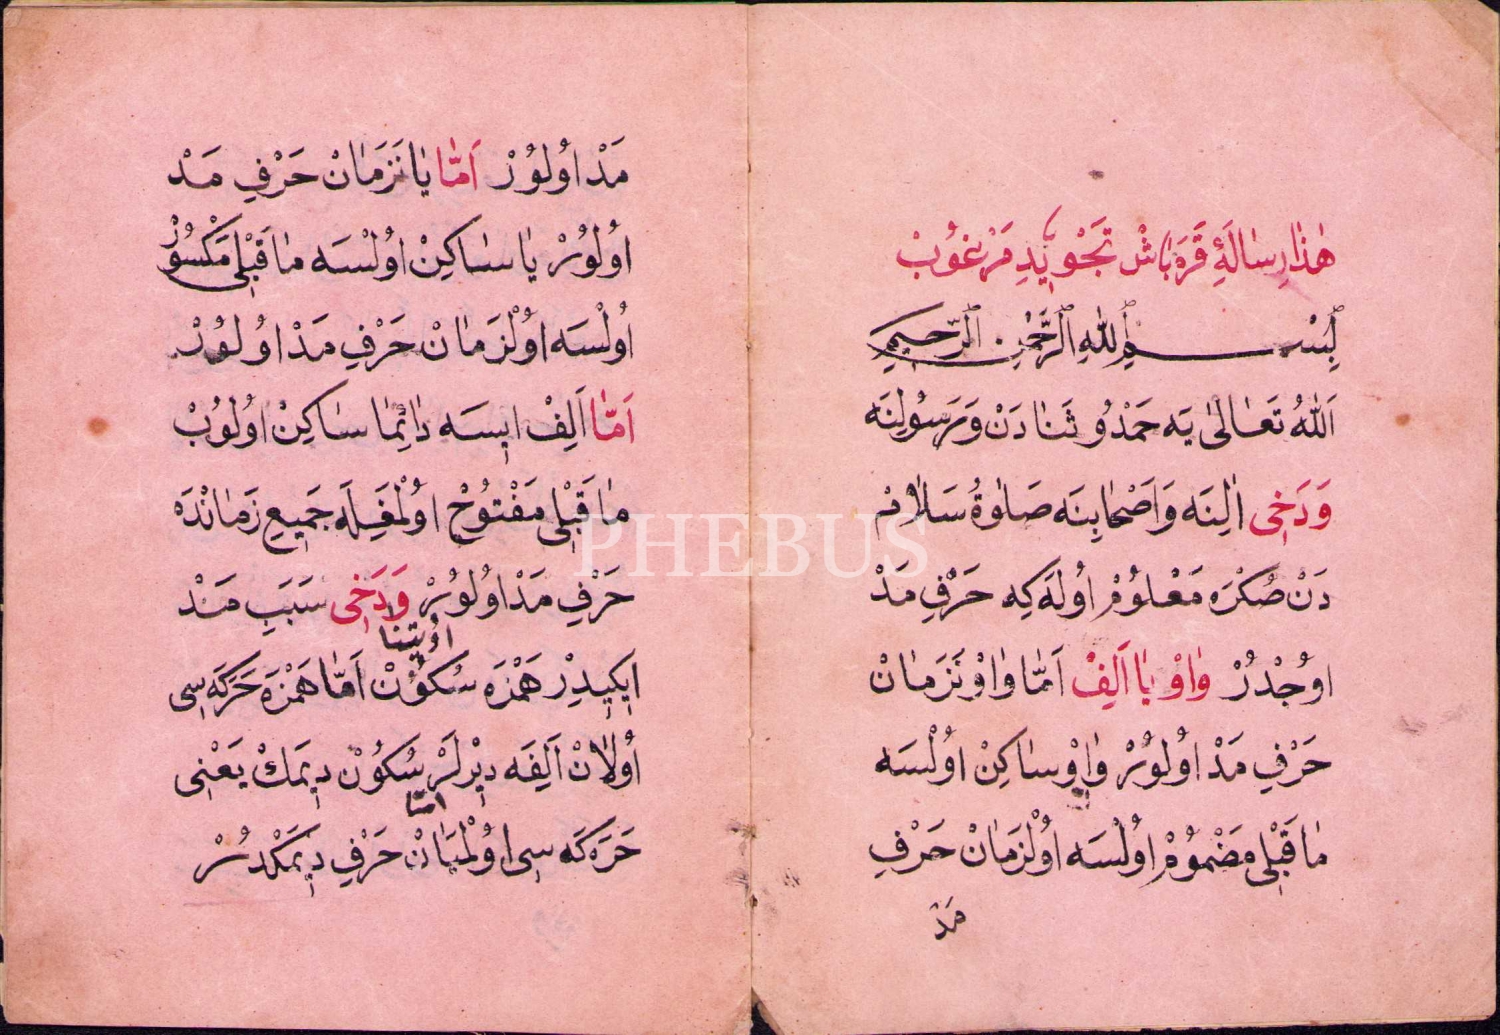 هٰذَا رِسَالَةِٔ قَرَه بَاشْ تَجْوِيدِ مَرْغُوبْ
بِسْمِ ٱللهِ ٱلرَّحْمٰنِ ٱلرَّحِيمِ
اَللهُ تَعَالٰى يَه حَمْدُو ثَنَا دَنْ وَرَسُولِنَه
وَدَخِى اٰلِنَه وَاَصْحَابِنَه صَلٰوةُ سَلَامْ
دَنْ صُكْرَه مَعْلُومْ اُولَه كِه حَرْفِ مَدْ
اوُجْدُرْ وَاوْ يَا اَلِفْ اَمَّا وَاوْ نَزَمَانْ
حَرْفِ مَدْ اوُلوُرْ وَاوْ سَاكِنْ اوُلْسَه
مَا قَبْلِى مَضْمُومْ اوُلْسَه اوُلْزَمَانْ حَرْفِ
مَدْ
مَدْ اوُلوُرْ اَمَّا يَا نَزَمَانْ حَرْفِ مَدْ
اوُلوُرْ يَا سَاكِنْ اوُلْسَه مَا قَبْلِى مَكْسُورْ
اُولْسَه اوُلْزَمَانْ حَرْفِ مَدْ اوُلوُرْ
اَمَّا اَلِفْ اِيسَه دَائِمَا سَاكِنْ اوُلوُبْ
مَا قَبْلِى مَفْتُوحْ اوُلْمَغِلَه جَمِيعِ زَمَانْدَه
حَرْفِ مَدْ اوُلوُرْ وَدَخِى سَبَبِ مَدْ
اِيكِيدِرْ هَمْزَه سُكُونْ اَمَّا هَمْزَه حَرَكَه سِى
اُولَانْ اَلِفَه دِيرْلَرْ سُكُونْ دِيمَكْ يَعْنِى
امّا
حَرَكَه سِى اوُلْمَيَانْ حَرْفِ دِيمَكْدُرْ